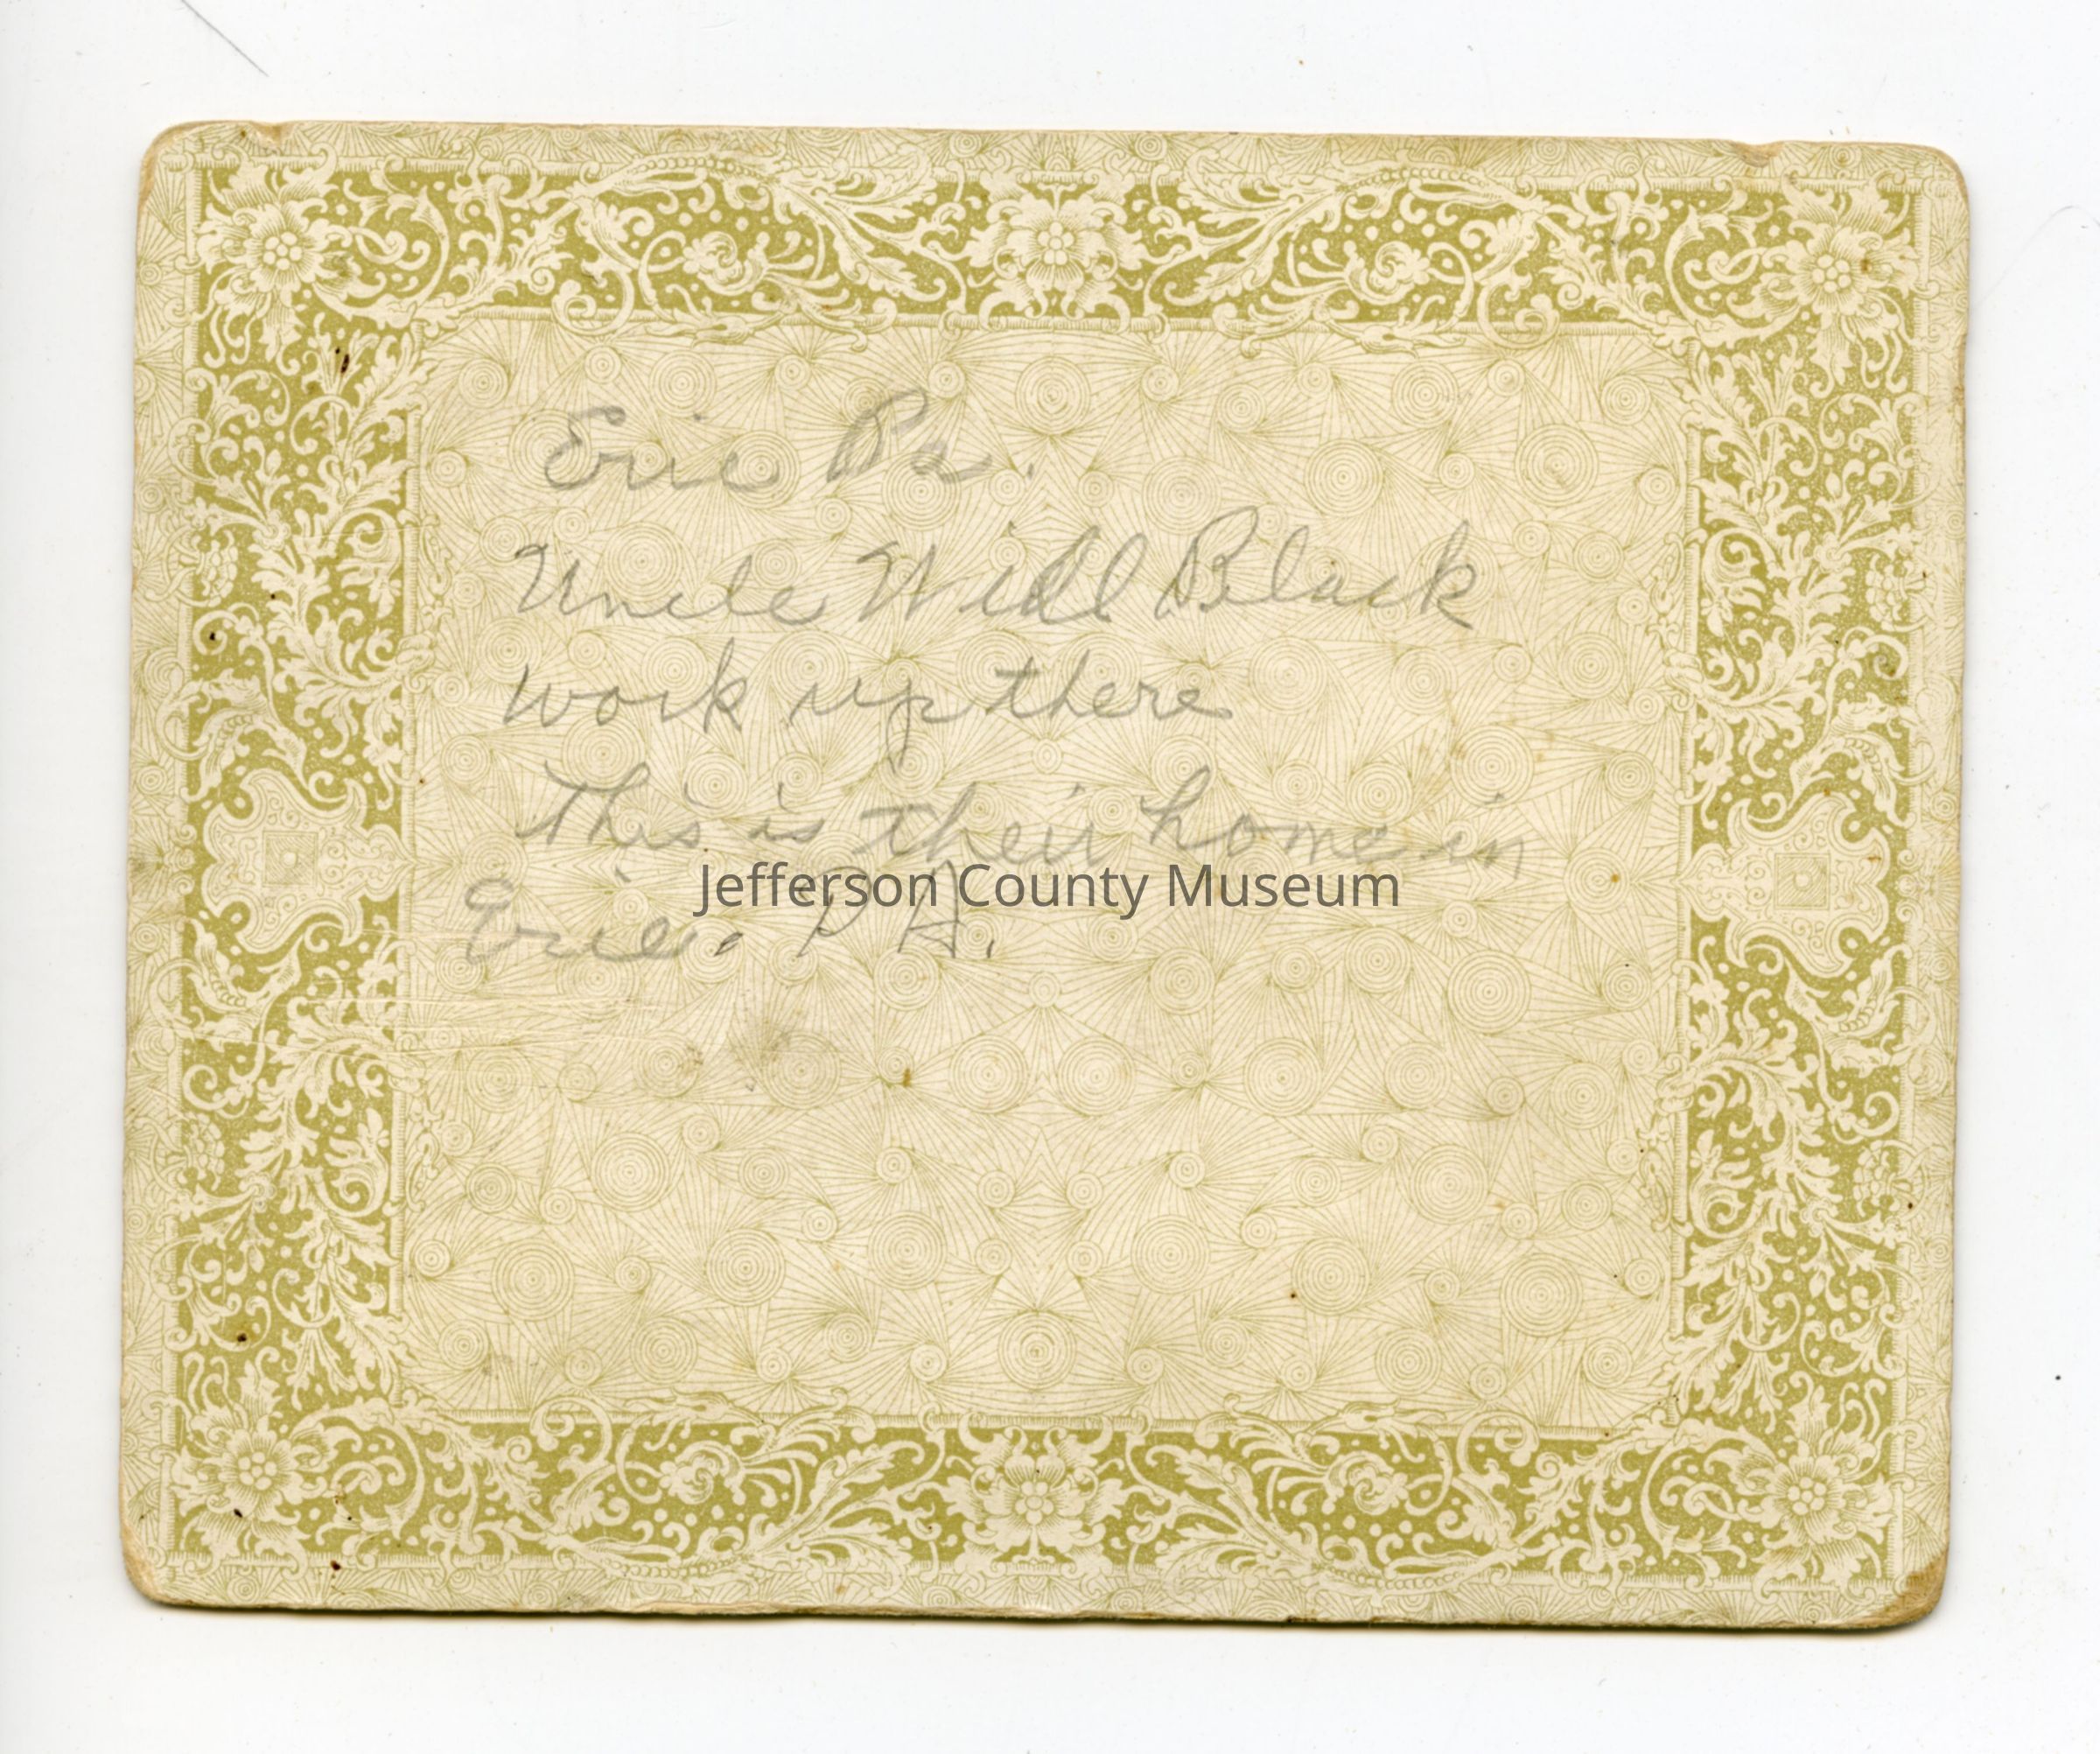 Erie Pa.
Uncle Will Black
work up there
This is their home in
Jefferson County Museum
Erie. PA.